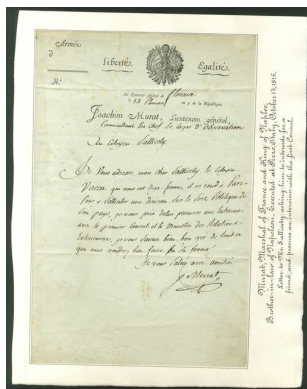 Armée
d
Liberté. Egalité.
N.
Au Quartier général de Florence
le 23 an 9 de la République.
Joachim Murat, Lieutenant général,
Commandant en Chef le Corps d'Observation
Au Citoyen Sallicety
Je vous adresse, mon cher Sallicety le Citoyen
Vacca qui vous est déjà connu, il se rend à Paris
Pour y sur le Sort Politique de
Son pays, je vous prie de lui procurer une Entrevue
avec le premier Consul et le Ministre des Relations
Extérieures, je vous Saurai bien bon gré de tout ce
que vous voudrez bien faire En Sa faveur.
Je vous Salue avec amitié
J. Murat
Murat, Marshal of France and King of Naples,
Brother-in-law of Napoleon. Executed at Pizzo, Italy, October 13, 1815.
Letter to Mr. Sallicety, asking him to intercede for a
friend, and procure an interview with the first Consul.